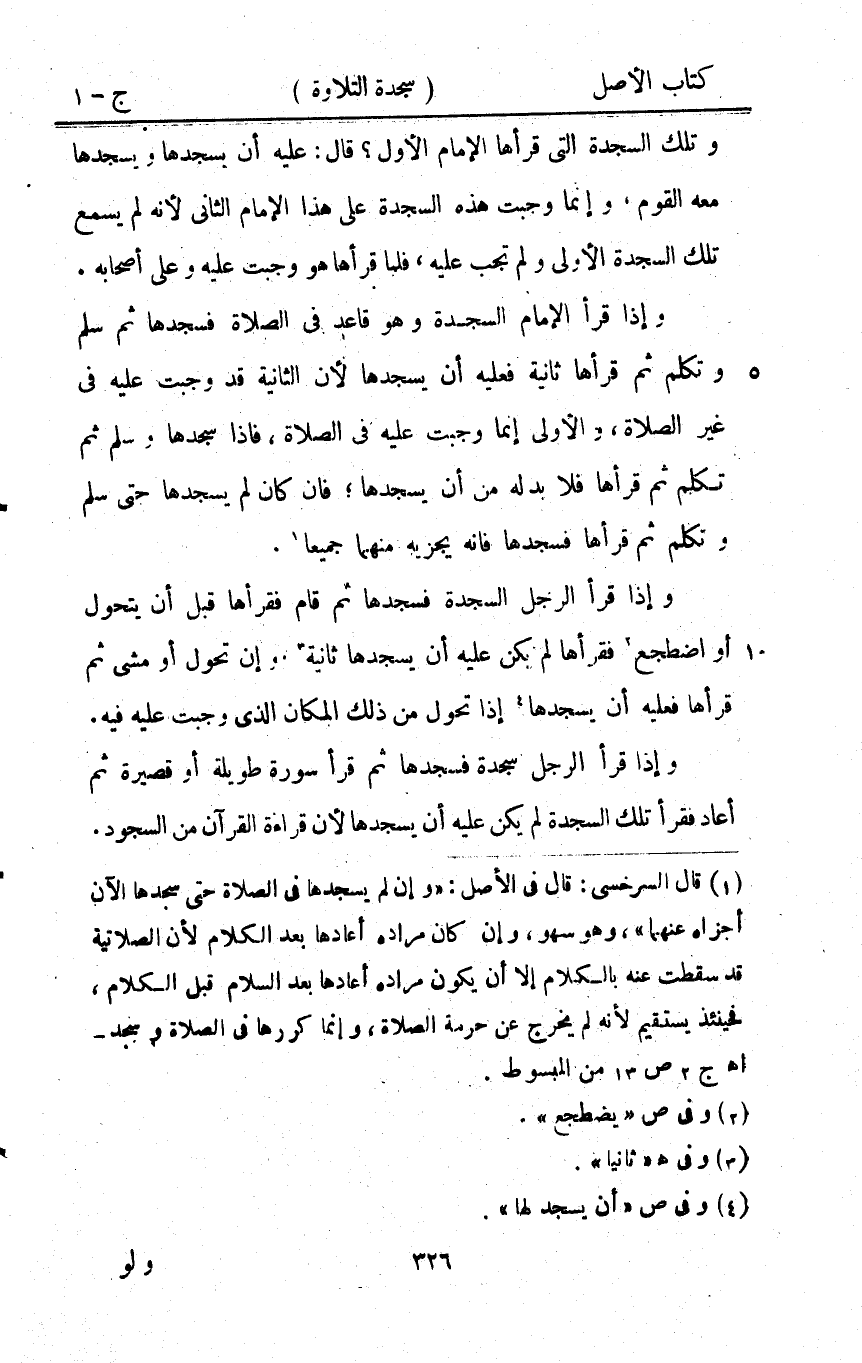 كتاب الأصل ( سجدة التلاوة ) ج - ١
و تلك السجدة التى قرأها الإمام الأول ؟ قال : عليه أن يسجدها و يسجدها
معه القوم ، و إنما وجبت هذه السجدة على هذا الإمام الثانى لأنه لم يسمع
تلك السجدة الأولى و لم تجب عليه ، فلما قرأها هو وجبت عليه و على أصحابه .
و إذا قرأ الإمام السجدة و هو قاعد فى الصلاة فسجدها ثم سلم
٥ و تكلم ثم قرأها ثانية فعليه أن يسجدها لأن الثانية قد وجبت عليه فى
غير الصلاة ، و الأولى إنما وجبت عليه فى الصلاة ، فاذا سجدها و سلم ثم
تكلم ثم قرأها فلا بد له من أن يسجدها ؛ فان كان لم يسجدها حتى سلم
و تكلم ثم قرأها فسجدها فانه يجزيه منهما جميعا ١ .
و إذا قرأ الرجل السجدة فسجدها ثم قام فقرأها قبل أن يتحول
١٠ أو اضطجع ٢ فقرأها لم يكن عليه أن يسجدها ثانية ٣ . و إن تحول أو مشى ثم
قرأها فعليه أن يسجدها ٤ إذا تحول من ذلك المكان الذى وجبت عليه فيه .
و إذا قرأ الرجل سجدة فسجدها ثم قرأ سورة طويلة أو قصيرة ثم
أعاد فقرأ تلك السجدة لم يكن عليه أن يسجدها لأن قراءة القرآن من السجود .
(١) قال السرخسى : قال فى الأصل : « و إن لم يسجدها فى الصلاة حتى سجدها الآن
أجزاه عنهما » ، و هو سهو ، و إن كان مراده أعادها بعد الكلام لأن الصلاتية
قد سقطت عنه بالكلام إلا أن يكون مراده أعادها بعد السلام قبل الكلام ،
فحينئذ يستقيم لأنه لم يخرج عن حرمة الصلاة ، و إنما كررها فى الصلاة و سجد -
اه ج ٢ ص ١٣ من المبسوط .
(٢) و فى ص « يضطجع » .
(٣) و فى ه « ثانيا » .
(٤) و فى ص « أن يسجد لها » .
٣٢٦ و لو